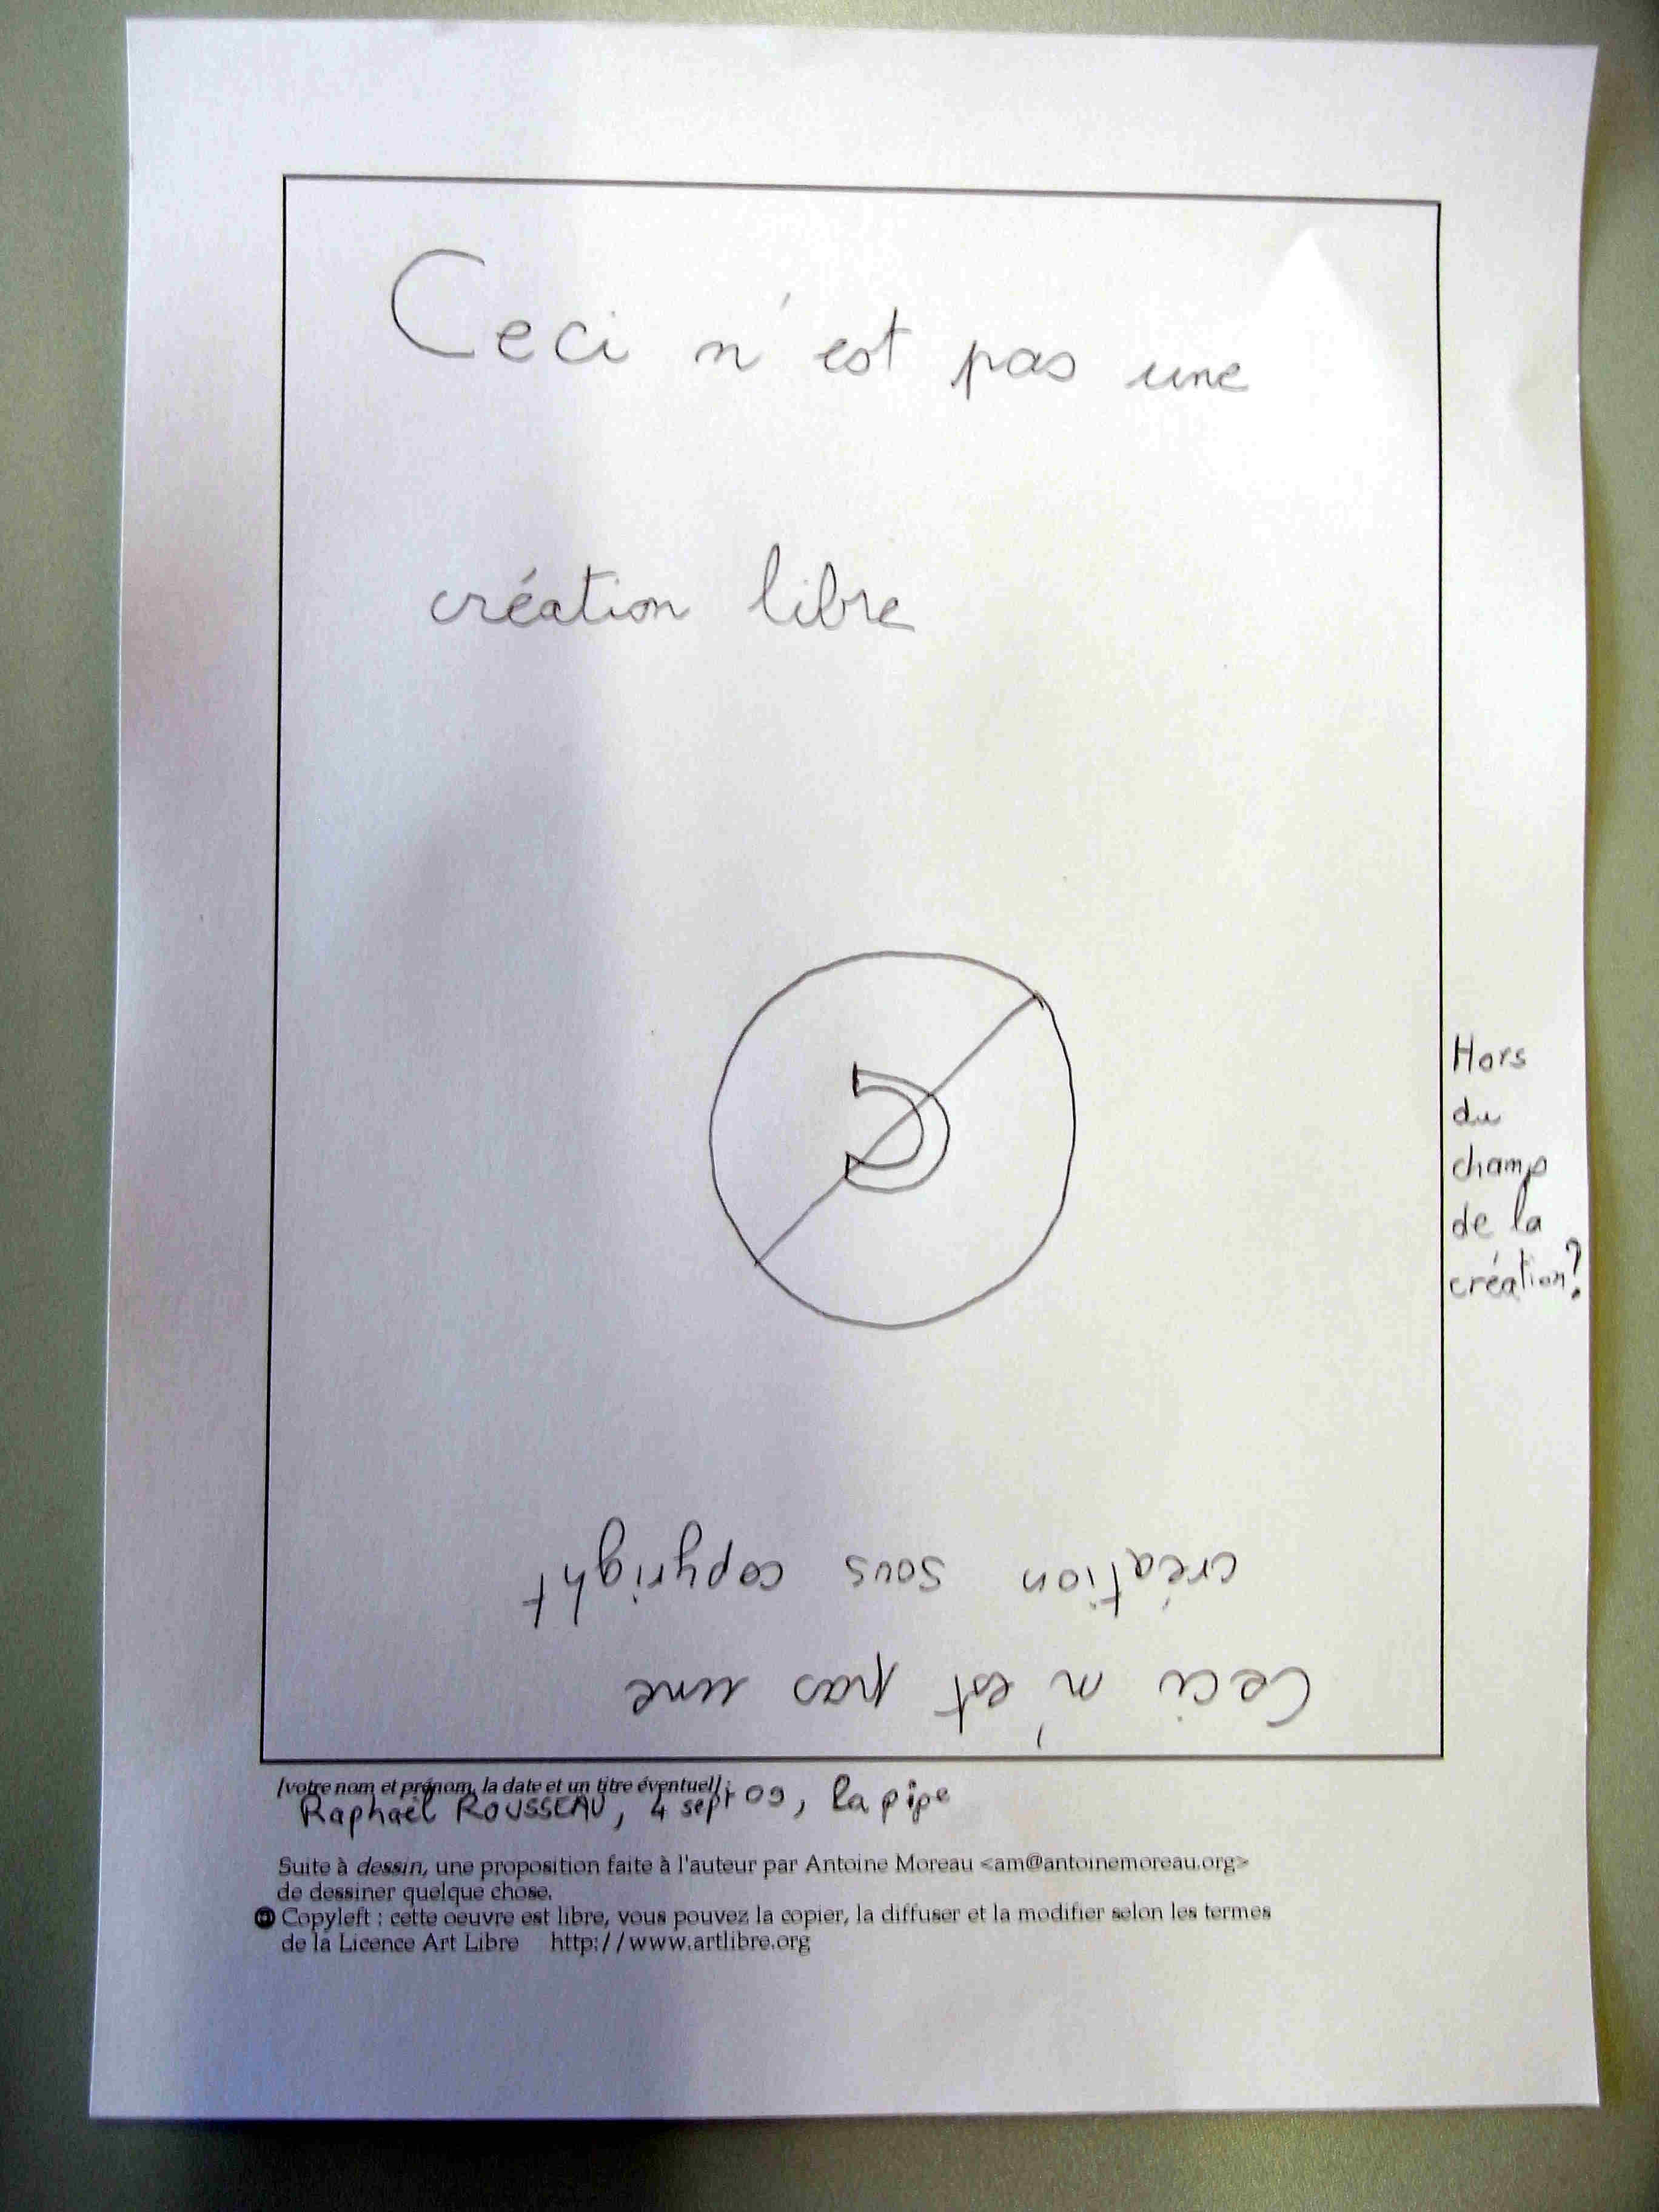 Ceci n'est pas une
création libre
Hors
du
champ
de la
création?
Ceci n'est pas une
création sous copyright
[votre nom et prénom, la date et un titre éventuel] :
Raphaël ROUSSEAU, 4 sept 09, la pipe
Suite à dessin, une proposition faite à l'auteur par Antoine Moreau <am@antoinemoreau.org>
de dessiner quelque chose.
Copyleft : cette oeuvre est libre, vous pouvez la copier, la diffuser et la modifier selon les termes
de la Licence Art Libre http://www.artlibre.org